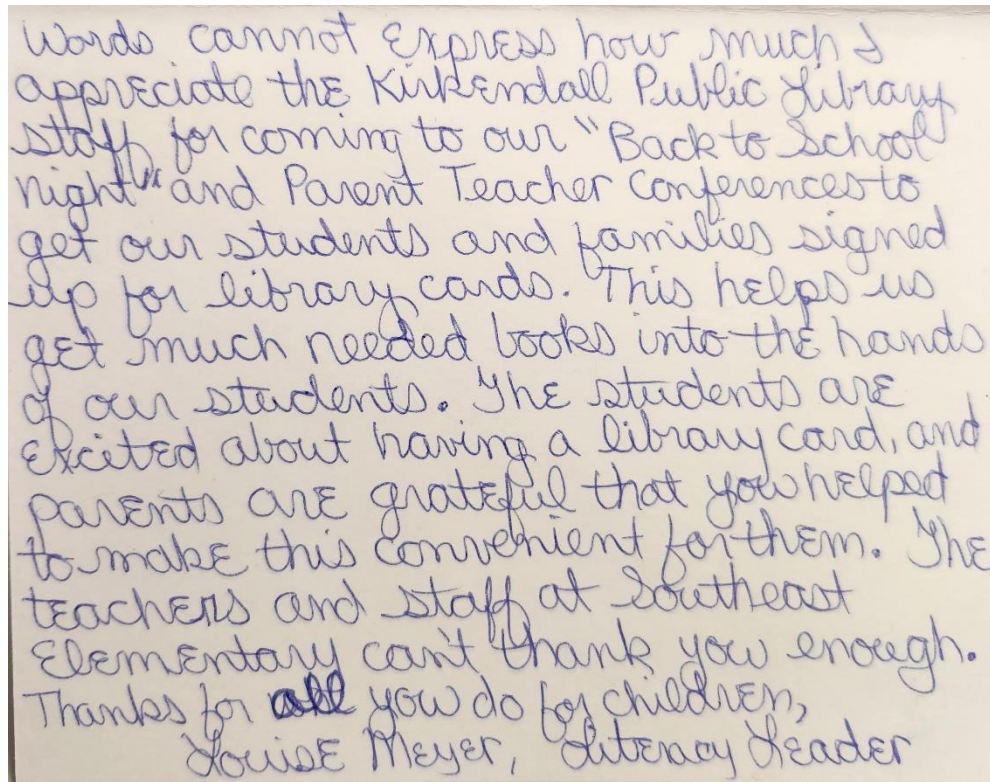 Words cannot Express how much I
appreciate the Kirkendall Public Library
staff for coming to our "Back to School
night" and Parent Teacher Conferences to
get our students and families signed
up for library cards. This helps us
get much needed books into the hands
of our students. The students are
excited about having a library card, and
parents are grateful that you helped
to make this convenient for them. The
teachers and staff at Southeast
Elementary can't thank you enough.
Thanks for all you do for children,
Louise Meyer, Literacy Leader